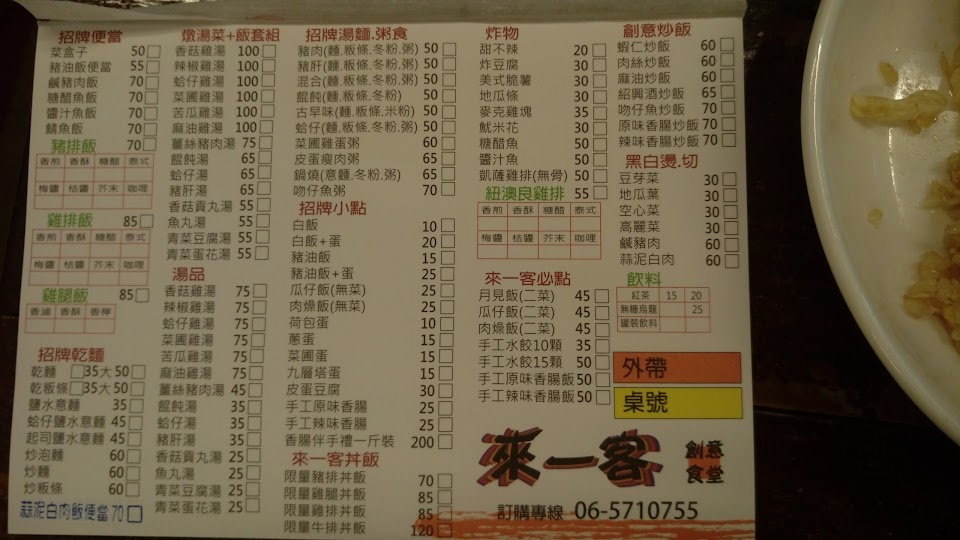 招牌便當
菜盒子 50
豬油飯便當 55
鹹豬肉飯 70
糖醋魚飯 70
醬汁魚飯 70
鯖魚飯 70
豬排飯
香煎 香酥 糖醋 泰式
梅醬 桔醬 芥末 咖哩
雞排飯 85
香煎 香酥 糖醋 泰式
梅醬 桔醬 芥末 咖哩
雞腿飯 85
香滷 香酥 香檸
招牌乾麵
乾麵 35大50
乾粄條 35大50
鹽水意麵 35
蛤仔鹽水意麵 45
起司鹽水意麵 45
炒泡麵 60
炒麵 60
炒粄條 60
蒜泥白肉飯便當 70
燉湯菜+飯套組
香菇雞湯 100
辣椒雞湯 100
蛤仔雞湯 100
菜圃雞湯 100
苦瓜雞湯 100
麻油雞湯 100
薑絲豬肉湯 75
餛飩湯 65
蛤仔湯 65
豬肝湯 65
香菇貢丸湯 55
魚丸湯 55
青菜豆腐湯 55
青菜蛋花湯 55
湯品
香菇雞湯 75
辣椒雞湯 75
蛤仔雞湯 75
菜圃雞湯 75
苦瓜雞湯 75
麻油雞湯 75
薑絲豬肉湯 45
餛飩湯 35
蛤仔湯 35
豬肝湯 35
香菇貢丸湯 25
魚丸湯 25
青菜豆腐湯 25
青菜蛋花湯 25
招牌湯麵.粥食
豬肉(麵.粄條.冬粉.粥) 50
豬肝(麵.粄條.冬粉.粥) 50
混合(麵.粄條.冬粉.粥) 50
餛飩(麵.粄條.冬粉) 50
古早味(麵.粄條.米粉) 50
蛤仔(麵.粄條.冬粉.粥) 50
菜圃雞蛋粥 60
皮蛋瘦肉粥 65
鍋燒(意麵.冬粉.粥) 65
吻仔魚粥 70
招牌小點
白飯 10
白飯+蛋 20
豬油飯 15
豬油飯+蛋 25
瓜仔飯(無菜) 25
肉燥飯(無菜) 25
荷包蛋 10
蔥蛋 15
菜圃蛋 15
九層塔蛋 15
皮蛋豆腐 30
手工原味香腸 25
手工辣味香腸 25
香腸伴手禮一斤裝 200
來一客丼飯
限量豬排丼飯 70
限量雞腿丼飯 85
限量雞排丼飯 85
限量牛排丼飯 120
炸物
甜不辣 20
炸豆腐 30
美式脆薯 30
地瓜條 30
麥克雞塊 35
魷米花 30
糖醋魚 50
醬汁魚 50
凱薩雞排(無骨) 50
紐澳良雞排 55
香煎 香酥 糖醋 泰式
梅醬 桔醬 芥末 咖哩
來一客必點
月見飯(二菜) 45
瓜仔飯(二菜) 45
肉燥飯(二菜) 45
手工水餃10顆 35
手工水餃15顆 50
手工原味香腸飯 50
手工辣味香腸飯 50
創意炒飯
蝦仁炒飯 60
肉絲炒飯 60
麻油炒飯 60
紹興酒炒飯 65
吻仔魚炒飯 70
原味香腸炒飯 70
辣味香腸炒飯 70
黑白燙.切
豆芽菜 30
地瓜葉 30
空心菜 30
高麗菜 30
鹹豬肉 60
蒜泥白肉 60
飲料
紅茶 15 20
無糖烏龍 25
罐裝飲料
外帶
桌號
來一客 創意食堂
訂購專線 06-5710755